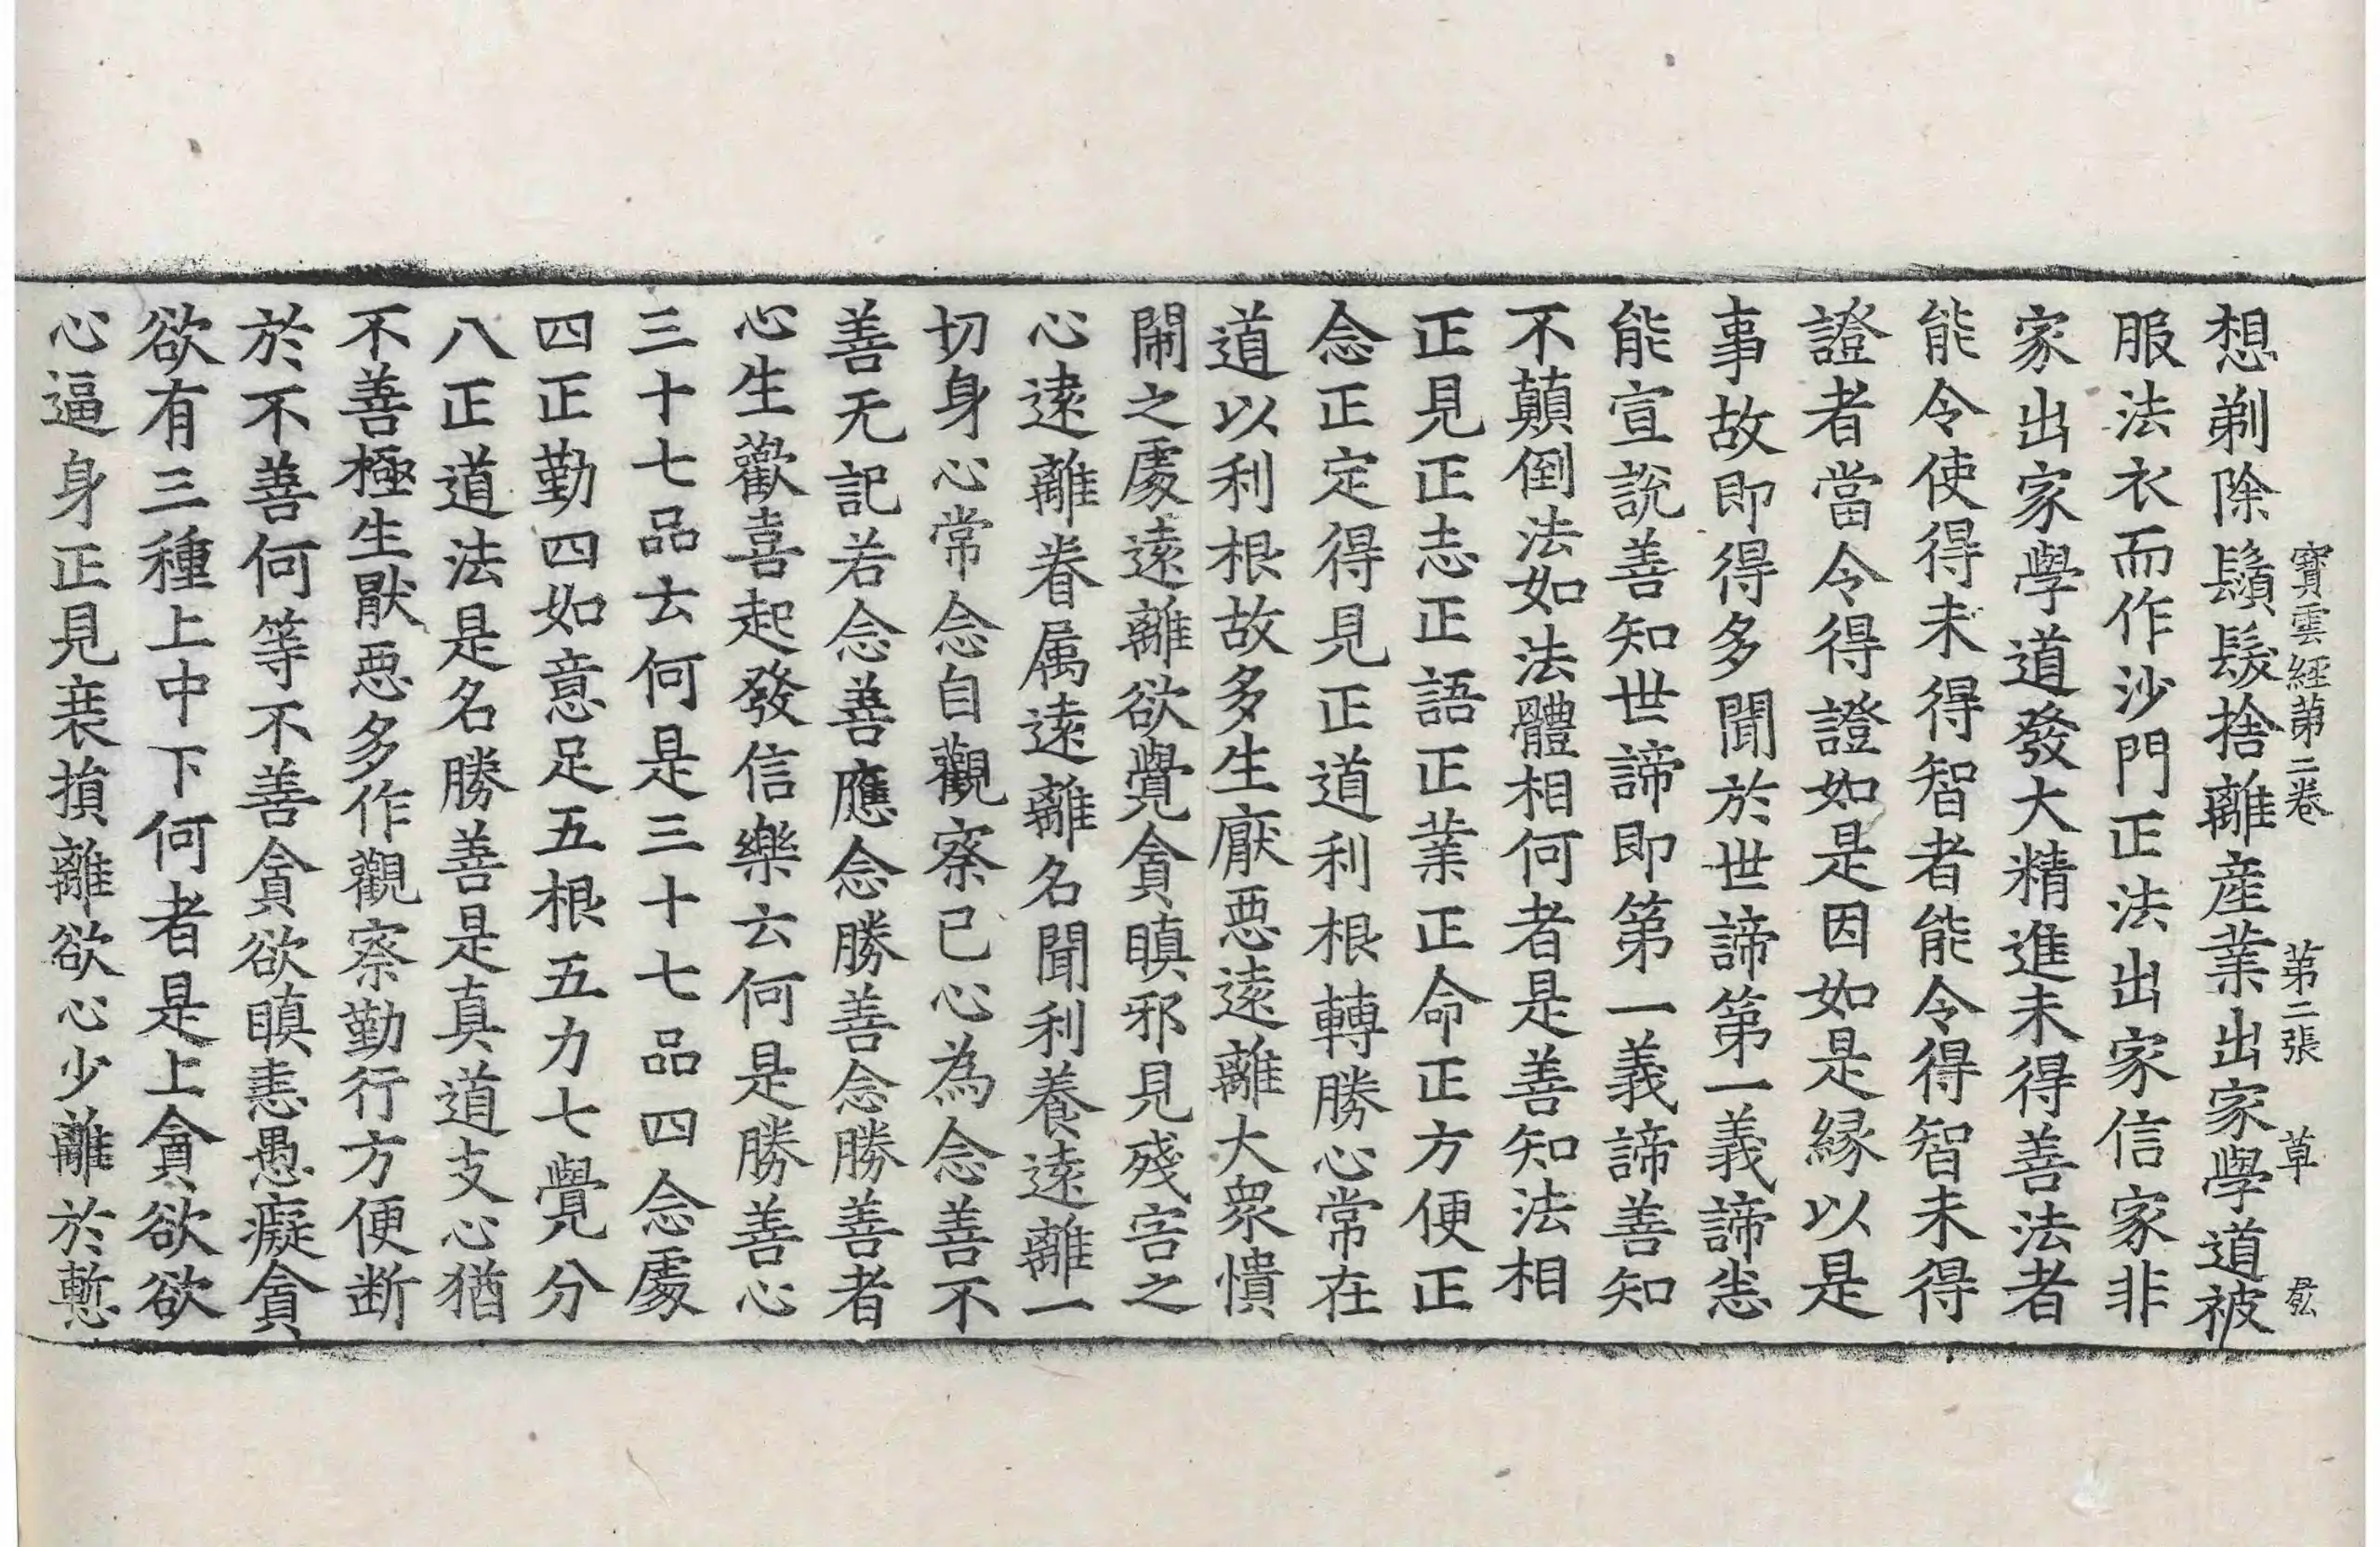 寶雲經第二卷 第二張 草
想剃除鬚髮捨離產業出家學道被
服法衣而作沙門正法出家信家非
家出家學道發大精進未得善法者
能令使得未得智者能令得智未得
證者當令得證如是因如是緣以是
事故即得多聞於世諦第一義諦恙
能宣說善知世諦即第一義諦善知
不顛倒法如法體相何者是善知法相
正見正志正語正業正命正方便正
念正定得見正道利根轉勝心常在
道以利根故多生厭惡遠離大眾憒
閙之處遠離欲覺貪瞋邪見殘害之
心遠離眷属遠離名聞利養遠離一
切身心常念自觀察已心為念善不
善无記若念善應念勝善念勝善者
心生歡喜起發信樂云何是勝善心
三十七品去何是三十七品四念處
四正勤四如意足五根五力七覺分
八正道法是名勝善是真道支心猶
不善極生厭惡多作觀察勤行方便断
於不善何等不善貪欲瞋恚愚癡貪
欲有三種上中下何者是上貪欲欲
心逼身正見衰損離欲心少離於慙